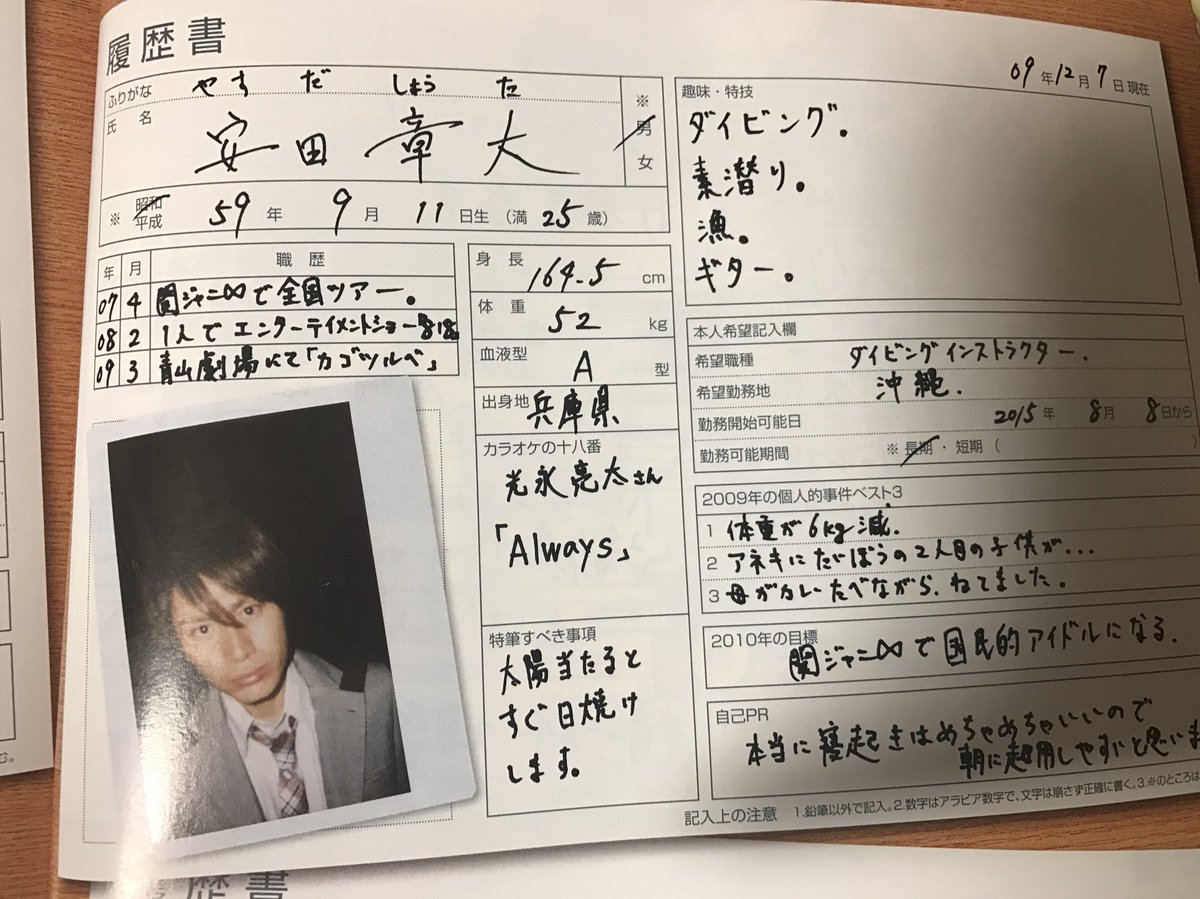 履歴書
09年12月7日現在
ふりがな やす だ しょう た
氏名 安田章大
※ 男 女
※ 昭和 平成 59年 9月 11日生 (満 25歳)
年 月 職歴
07 4 関ジャニ∞で全国ツアー。
08 2 1人でエンターテイメントショー
09 3 青山劇場にて「カゴツルベ」
身長 164.5 cm
体重 52 kg
血液型 A 型
出身地 兵庫県
カラオケの十八番
光永亮太さん
「Always」
特筆すべき事項
太陽当たると
すぐ日焼け
します。
趣味・特技
ダイビング。
素潜り。
漁。
ギター。
本人希望記入欄
希望職種 ダイビングインストラクター.
希望勤務地 沖縄.
勤務開始可能日 2015年 8月 8日から
勤務可能期間 ※ 長期・短期 (
2009年の個人的事件ベスト3
1 体重が6kg減.
2 アネキにたいぼうの2人目の子供が...
3 母がカレーたべながら、ねてました。
2010年の目標
関ジャニ∞で国民的アイドルになる.
自己PR
本当に寝起きはめちゃめちゃいいので
朝に起用しやすいと思いま
記入上の注意 1.鉛筆以外で記入。2.数字はアラビア数字で、文字は崩さず正確に書く。3.※のところは
む。
歴書